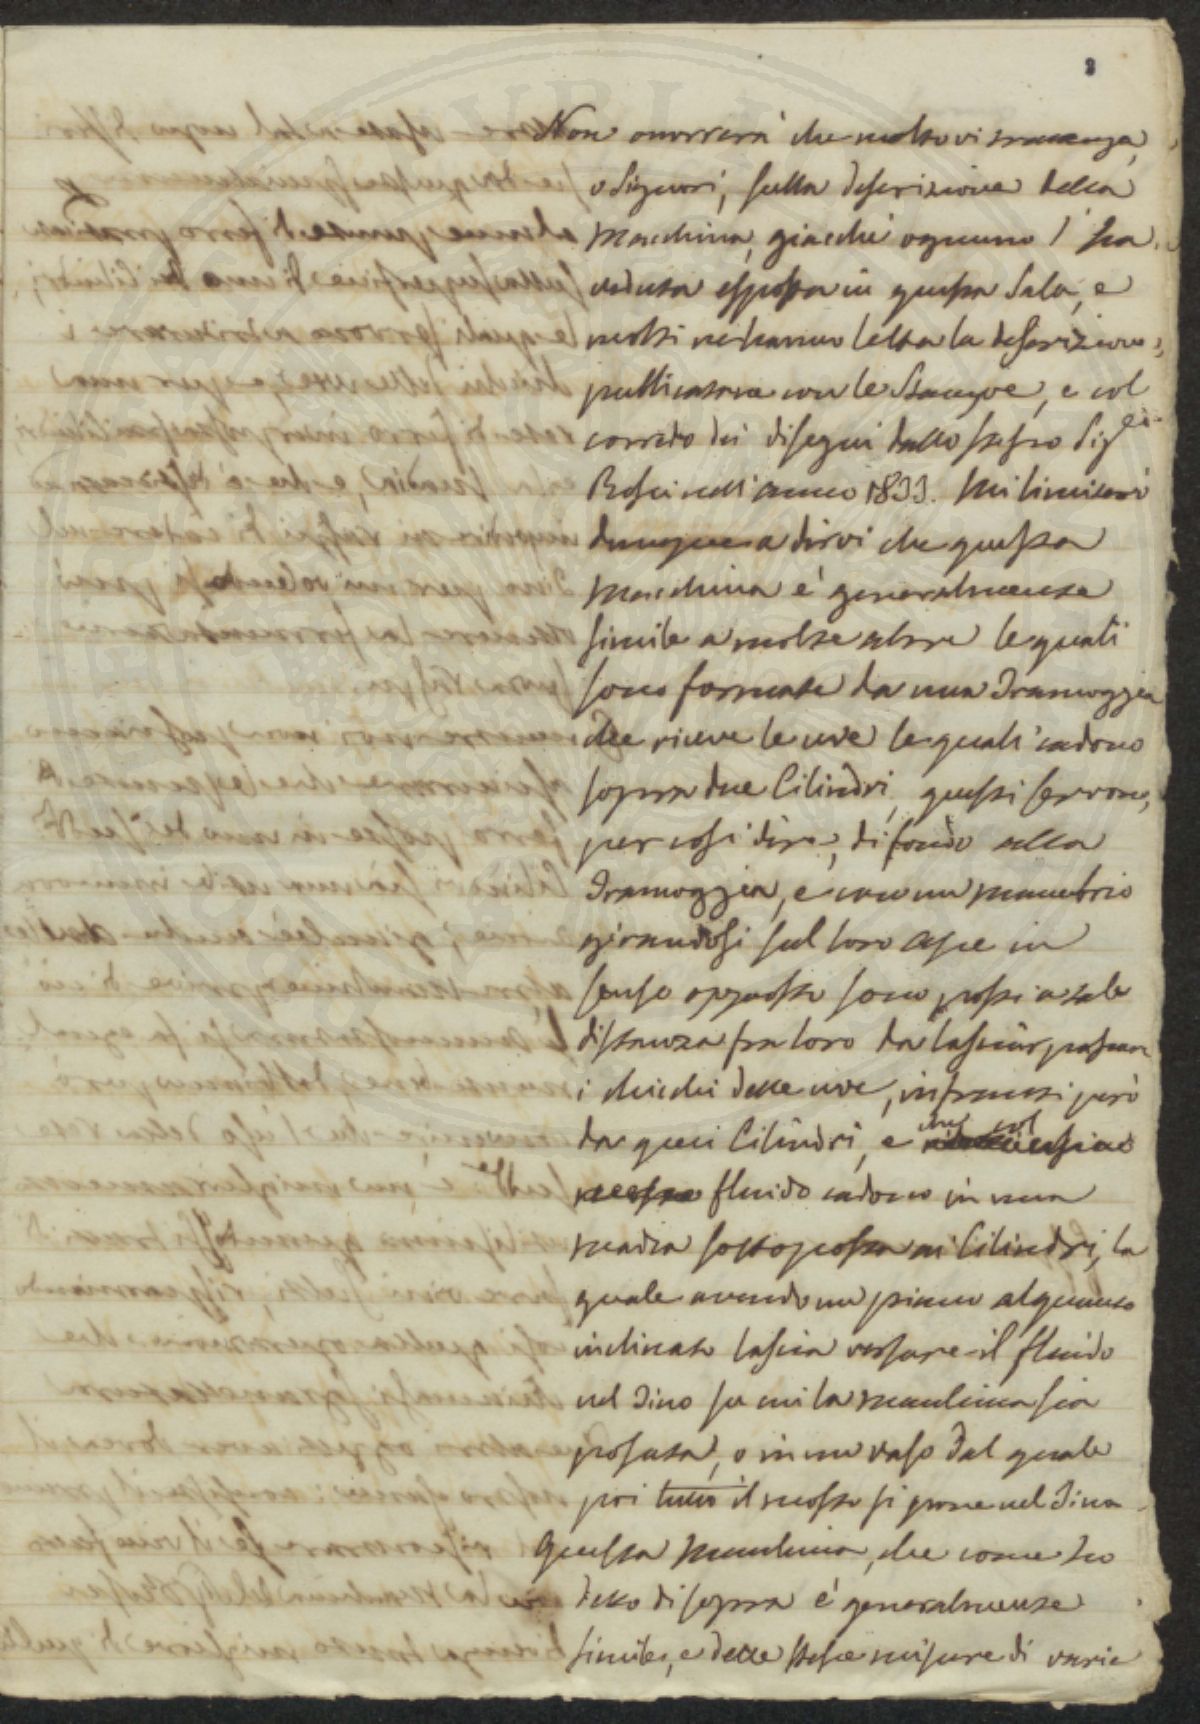 3
Non occorrerà che molto vi trattenga,
o Signori, sulla descrizione della
Macchina, giacchè ognuno l'ha
veduta esposta in questa Sala, e
molti ne hanno letta la descrizione,
pubblicatara con le Stampe, e col
corredo dei disegni dallo stesso Sig.re
nell'anno 1833. Mi limiterò
dunque a dirvi che questa
Macchina è generalmente
simile a molte altre le quali
sono formate da una Tramoggia
che riceve le uve le quali cadono
sopra due Cilindri, questi servono,
per così dire, di fondo alla
Tramoggia, e con un manubrio
girandosi sul loro asse in
senso opposto sono posti a tale
distanza fra loro da lasciar passare
i chicchi delle uve, infranti però
da quei Cilindri, e che col
fluido cadono in una
madia sottoposta ai Cilindri, la
quale avendo un piano alquanto
inclinato lascia versare il fluido
nel Tino su cui la macchina sia
posata, o in un vaso dal quale
poi tutto il mosto si pone nel Tino.
Questa Macchina, che come ho
detto di sopra è generalmente
simile, e delle stesse misure di varie